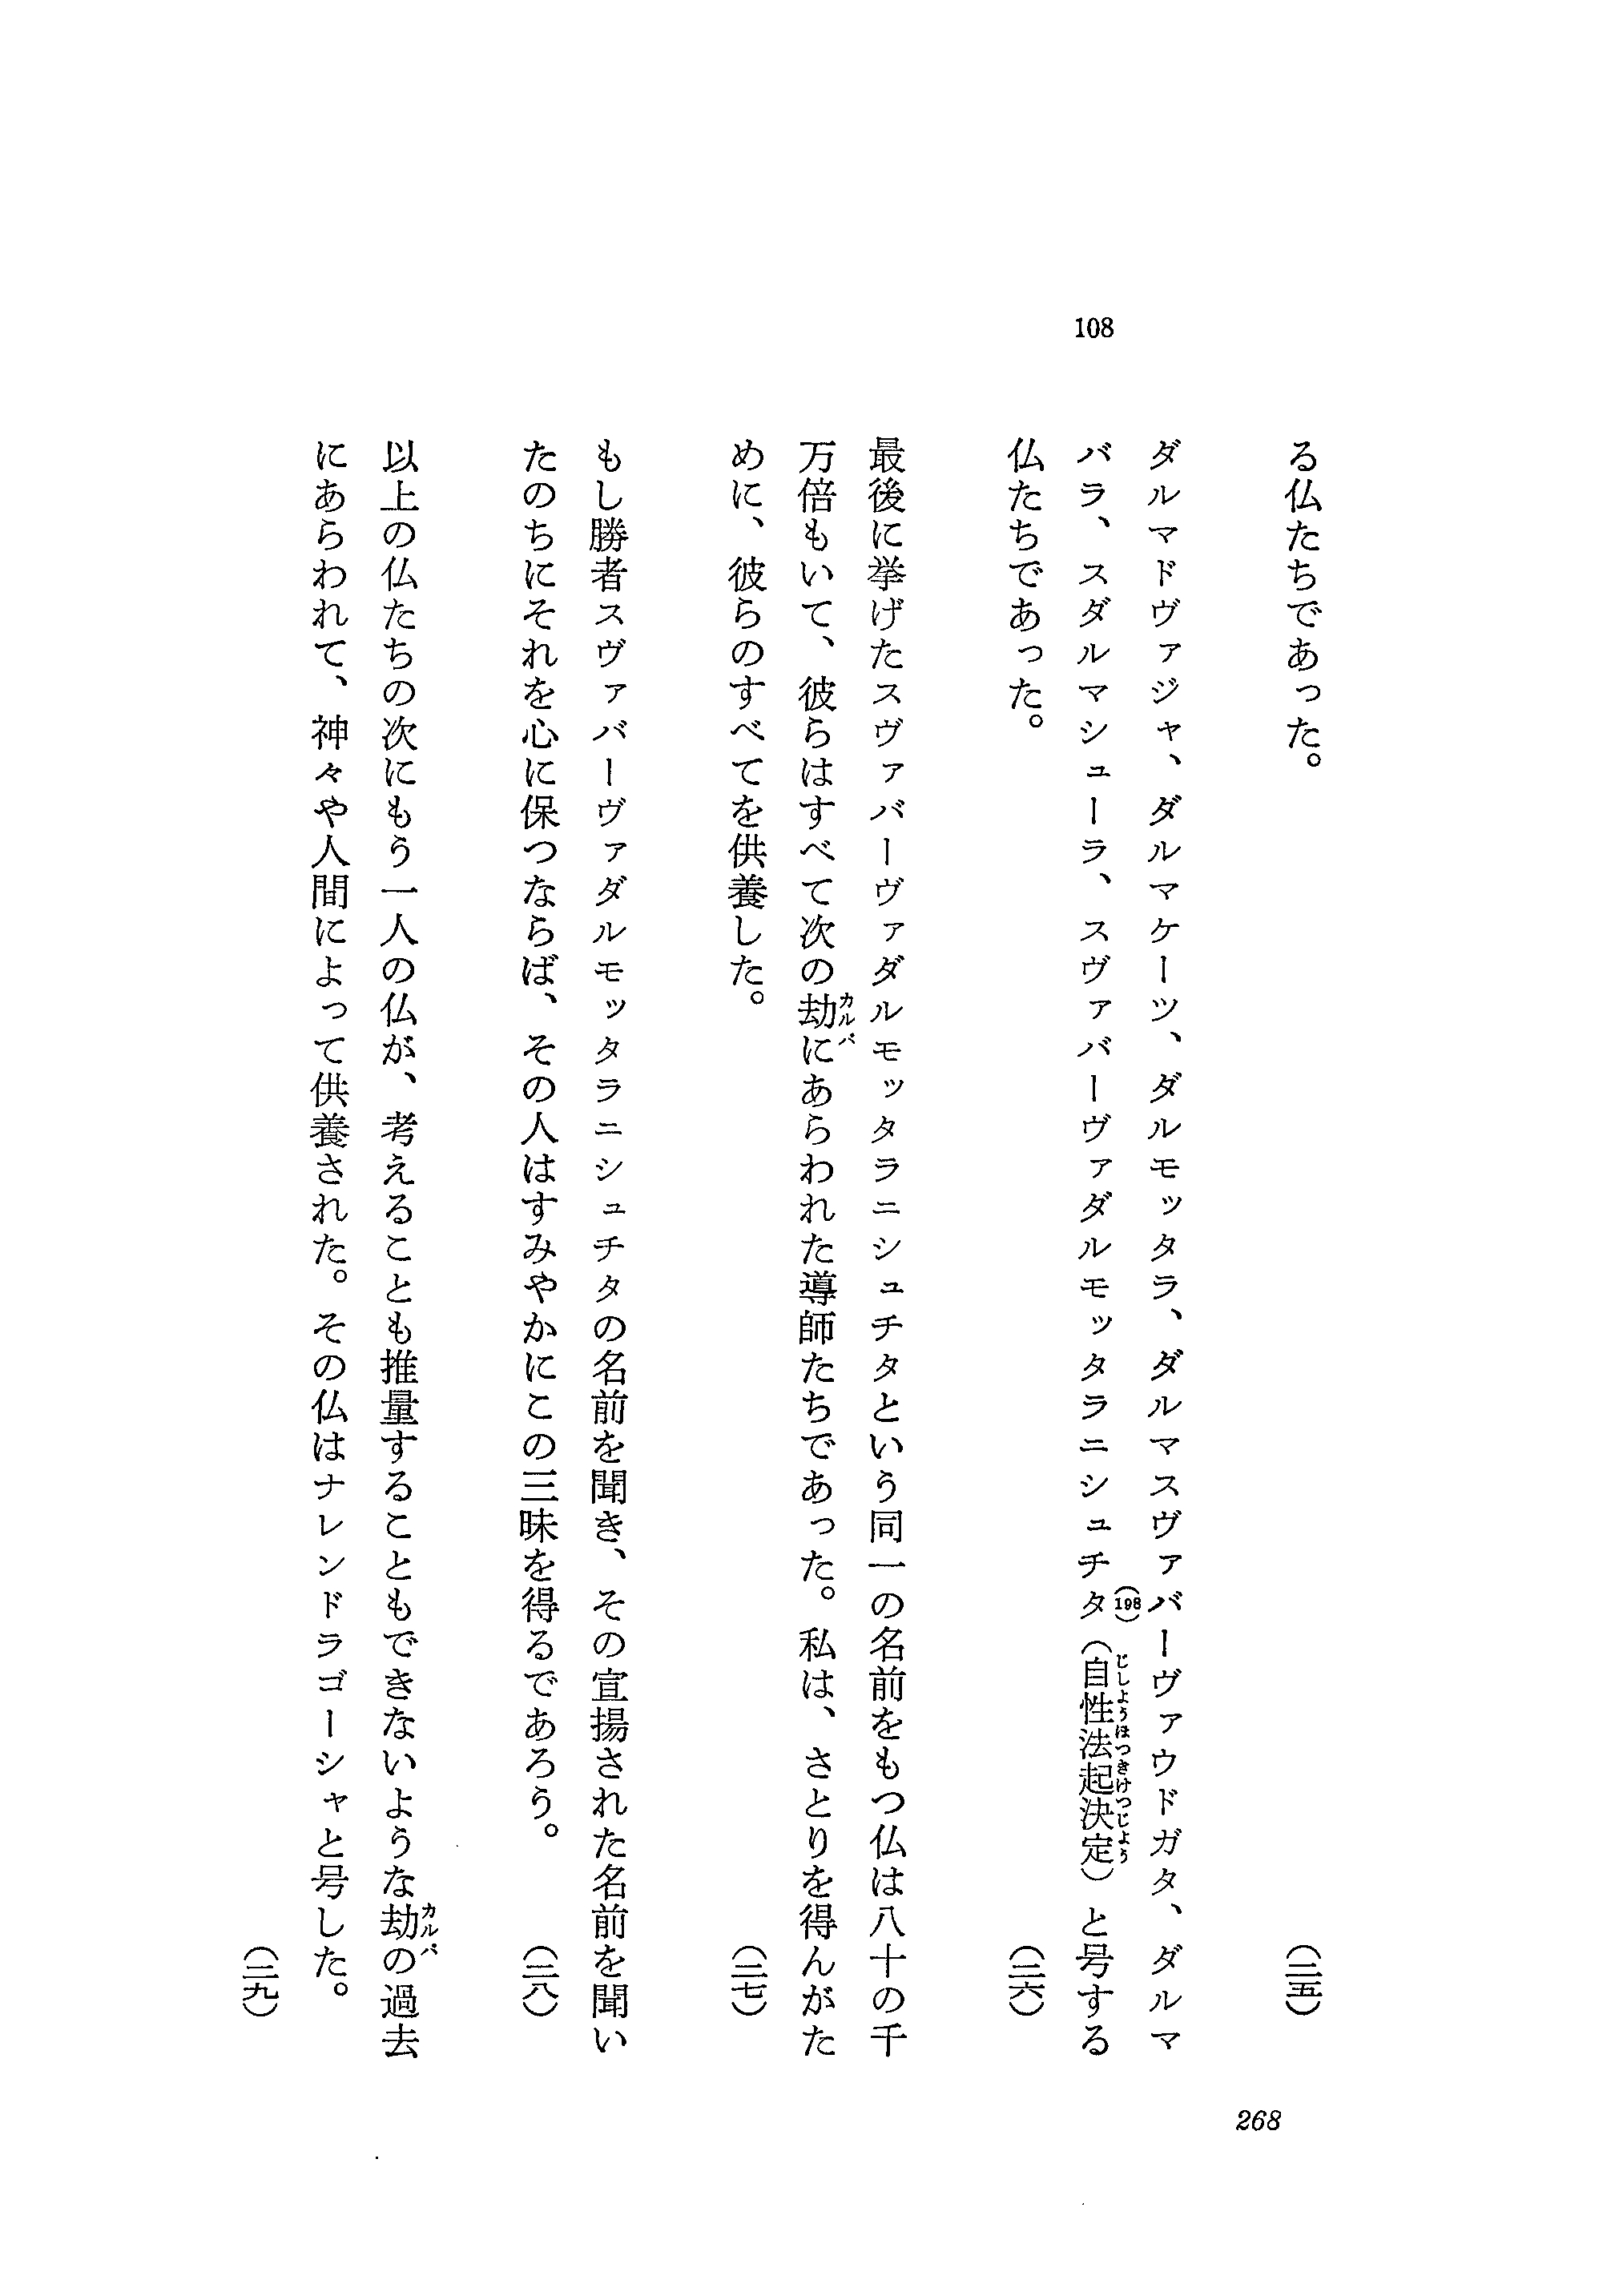 る仏たちであった。
（二五）
108
ダルマドヴァジャ、ダルマケーツ、ダルモッタラ、ダルマスヴァバーヴァウドガタ、ダルマ
バラ、スダルマシューラ、スヴァバーヴァダルモッタラニシュチタ（198）（自性法起決定）と号する
じしようほつきけつじよう
仏たちであった。
（二六）
最後に挙げたスヴァバーヴァダルモッタラニシュチタという同一の名前をもつ仏は八十の千
万倍もいて、彼らはすべて次の劫にあらわれた導師たちであった。私は、さとりを得んがた
カルパ
めに、彼らのすべてを供養した。
（二七）
もし勝者スヴァバーヴァダルモッタラニシュチタの名前を聞き、その宣揚された名前を聞い
たのちにそれを心に保つならば、その人はすみやかにこの三昧を得るであろう。
（二八）
以上の仏たちの次にもう一人の仏が、考えることも推量することもできないような劫の過去
カルパ
にあらわれて、神々や人間によって供養された。その仏はナレンドラゴーシャと号した。
（二九）
268